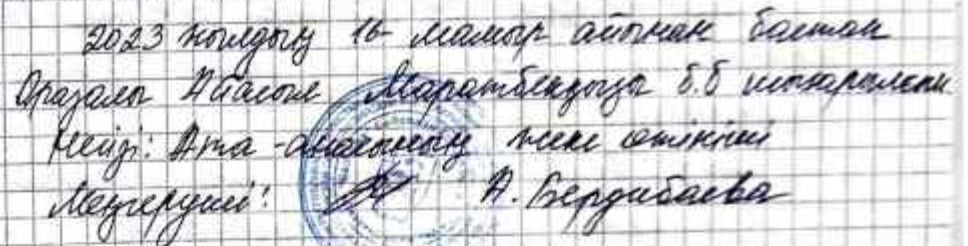 2023 жылдың 16- мамыр айынан бастап
Оразалы Маратбекқызы б.б шығарылсын
Негізі: Ата-анасының жеке өтініші
Меңгеруші: А. Бердибаева